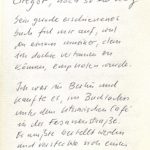 Gregor, noch so ein Weg
Sein gerade erschienenes
Buch fiel mir auf, weil
von einem Musiker, dem
ich dachte vertrauen zu
können, empfohlen wurde.
Ich war in Berlin und
kaufte es, im Buchladen
unter dem Literarischen Café
in der Fasanenstraße.
Es mußte bestellt werden
und reichte noch einen